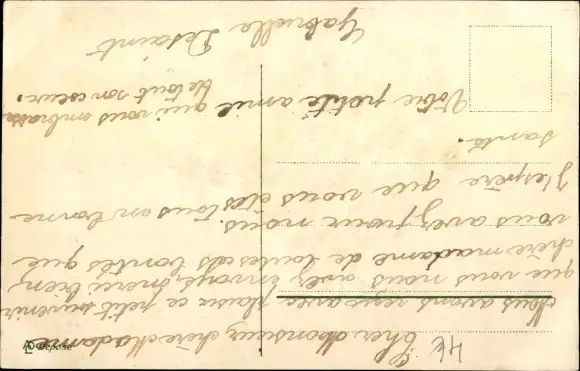 Cher Monsieur, chère Madame
Nous avons reçu avec plaisir ce petit souvenir
que vous nous avez envoyé, merci bien
chère madame de toutes ces bontés que
vous avez pour nous.
J'espère que vous êtes tous en bonne
santé.
Votre petite amie qui vous embrasse
de tout son coeur.
Gabrielle Desaint
Déposé